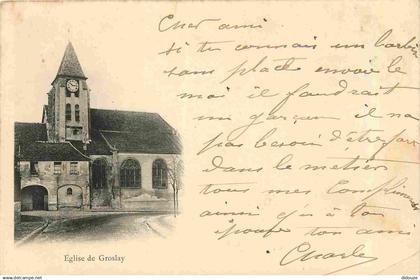 Cher ami
si tu connais un barbier
sans place envoie le
moi il faudrait
un garçon il n'a
pas besoin d'être fort
dans le métier
tous mes Compliments
ainsi qu'à ton
épouse ton ami
Charles
Eglise de Groslay